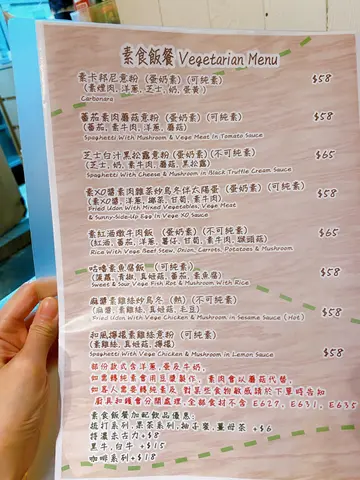 素食飯餐 Vegetarian Menu
素卡邦尼意粉 (蛋奶素) (可純素) $58
(素煙肉, 洋蔥, 芝士, 奶, 蛋黃)
Carbonara
番茄素肉蘑菇意粉 (蛋奶素) (可純素) $58
(番茄, 素牛肉, 洋蔥, 蘑菇)
Spaghetti With Mushroom & Vege Meat In Tomato Sauce
芝士白汁黑松露意粉 (蛋奶素) (不可純素) $65
(芝士, 奶, 素牛肉, 蘑菇, 黑松露)
Spaghetti With Cheese & Mushroom in Black Truffle Cream Sauce
素XO醬素肉雜菜炒烏冬伴太陽蛋 (蛋奶素) (可純素) $58
(素XO醬, 洋蔥, 椰菜, 甘荀, 素牛肉)
Fried Udon With Mixed Vegetables, Vege Meat
& Sunny-Side-Up Egg In Vege XO Sauce
素紅酒燉牛肉飯 (蛋奶素) (不可純素) $65
(紅酒, 番茄, 洋蔥, 薯仔, 甘荀, 素牛肉, 猴頭菇)
Rice With Vege Beef Stew, Onion, Carrots, Potatoes & Mushroom
咕嚕素魚腐飯 (可純素) $58
(菠蘿, 青椒, 真姬菇, 番茄, 素魚腐)
Sweet & Sour Vege Fish Rot & Mushroom With Rice
麻醬素雞絲炒烏冬 (熱) (不可純素) $58
(麻醬, 素雞絲, 真姬菇, 毛豆)
Fried Udon With Vege Chicken & Mushroom in Sesame Sauce (Hot)
和風檸檬素雞絲意粉 (可純素)
(素雞絲, 真姬菇, 檸檬)
Spaghetti With Vege Chicken & Mushroom in Lemon Sauce $58
部份款式含洋蔥, 蛋及牛奶,
如需轉純素會用豆漿製作, 素肉會以蘑菇代替,
如客人需要轉純素及 對某些食物敏感請於下單時告知
廚具和鑊會分開處理, 全部食材不含 E627, E631, E635
素食飯餐加配飲品優惠:
梳打系列, 果茶系列, 柚子蜜, 薑母茶 +$6
特濃朱古力+$8
黑牛, 白牛 +$15
咖啡系列+$18